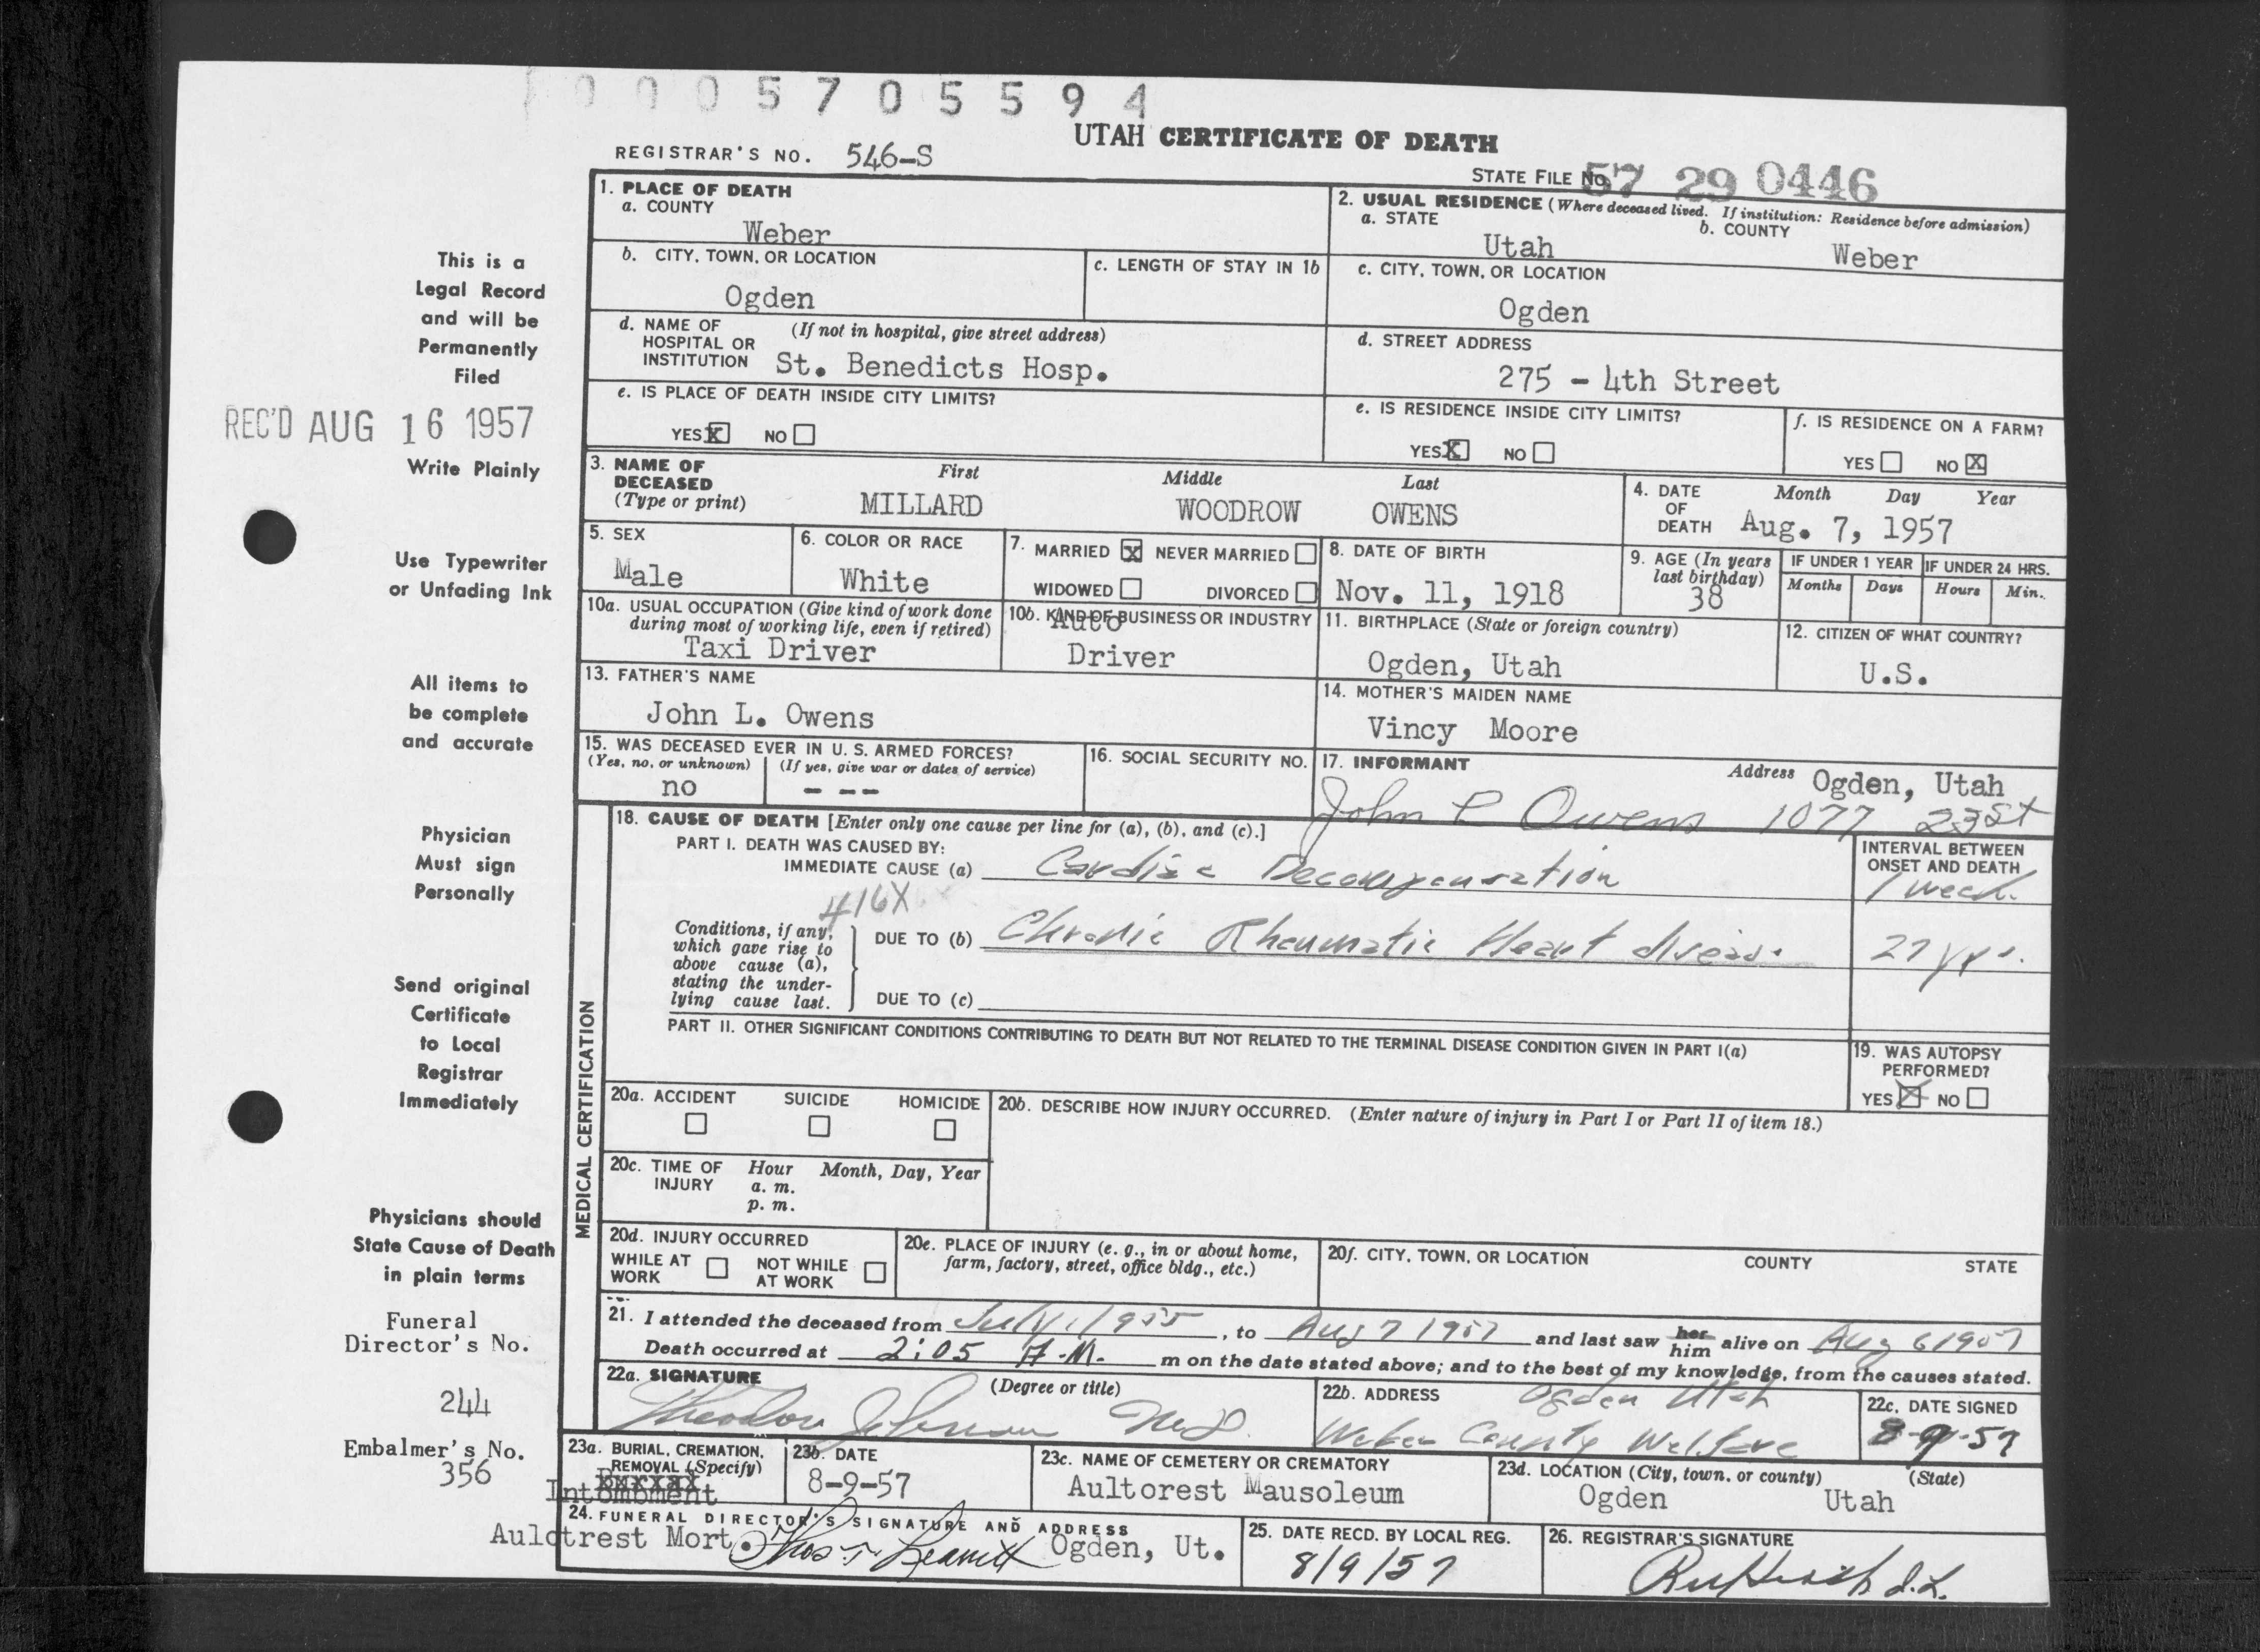 0005705594
UTAH CERTIFICATE OF DEATH
REGISTRAR'S NO. 546-S
STATE FILE No. 57 29 0446
1. PLACE OF DEATH
a. COUNTY
Weber
2. USUAL RESIDENCE (Where deceased lived. If institution: Residence before admission)
a. STATE b. COUNTY
Utah Weber
b. CITY, TOWN, OR LOCATION
Ogden
c. LENGTH OF STAY IN 1b
c. CITY, TOWN, OR LOCATION
Ogden
d. NAME OF HOSPITAL OR INSTITUTION (If not in hospital, give street address)
St. Benedicts Hosp.
d. STREET ADDRESS
275 - 4th Street
e. IS PLACE OF DEATH INSIDE CITY LIMITS?
YES X NO
e. IS RESIDENCE INSIDE CITY LIMITS?
YES X NO
f. IS RESIDENCE ON A FARM?
YES NO X
This is a
Legal Record
and will be
Permanently
Filed
REC'D AUG 16 1957
Write Plainly
Use Typewriter
or Unfading Ink
All items to
be complete
and accurate
Physician
Must sign
Personally
Send original
Certificate
to Local
Registrar
Immediately
Physicians should
State Cause of Death
in plain terms
Funeral
Director's No.
244
Embalmer's No.
356
3. NAME OF DECEASED (Type or print)
First Middle Last
MILLARD WOODROW OWENS
4. DATE OF DEATH Month Day Year
Aug. 7, 1957
5. SEX
Male
6. COLOR OR RACE
White
7. MARRIED X NEVER MARRIED
WIDOWED DIVORCED
8. DATE OF BIRTH
Nov. 11, 1918
9. AGE (In years last birthday)
38
IF UNDER 1 YEAR IF UNDER 24 HRS.
Months Days Hours Min.
10a. USUAL OCCUPATION (Give kind of work done during most of working life, even if retired)
Taxi Driver
10b. KIND OF BUSINESS OR INDUSTRY
Auto
Driver
11. BIRTHPLACE (State or foreign country)
Ogden, Utah
12. CITIZEN OF WHAT COUNTRY?
U.S.
13. FATHER'S NAME
John L. Owens
14. MOTHER'S MAIDEN NAME
Vincy Moore
15. WAS DECEASED EVER IN U. S. ARMED FORCES?
(Yes, no, or unknown) (If yes, give war or dates of service)
no - - -
16. SOCIAL SECURITY NO.
17. INFORMANT Address Ogden, Utah
John L Owens 1077 23 St
MEDICAL CERTIFICATION
18. CAUSE OF DEATH [Enter only one cause per line for (a), (b), and (c).]
PART I. DEATH WAS CAUSED BY:
IMMEDIATE CAUSE (a) Cardiac Decompensation
INTERVAL BETWEEN ONSET AND DEATH
1 week
416X
Conditions, if any, which gave rise to above cause (a), stating the underlying cause last.
DUE TO (b) Chronic Rheumatic Heart disease
27 yrs.
DUE TO (c)
PART II. OTHER SIGNIFICANT CONDITIONS CONTRIBUTING TO DEATH BUT NOT RELATED TO THE TERMINAL DISEASE CONDITION GIVEN IN PART I(a)
19. WAS AUTOPSY PERFORMED?
YES X NO
20a. ACCIDENT SUICIDE HOMICIDE
20b. DESCRIBE HOW INJURY OCCURRED. (Enter nature of injury in Part I or Part II of item 18.)
20c. TIME OF INJURY Hour Month, Day, Year
a. m.
p. m.
20d. INJURY OCCURRED
WHILE AT WORK NOT WHILE AT WORK
20e. PLACE OF INJURY (e. g., in or about home, farm, factory, street, office bldg., etc.)
20f. CITY, TOWN, OR LOCATION COUNTY STATE
21. I attended the deceased from July 1 1955, to Aug 7 1957 and last saw her him alive on Aug 6 1957
Death occurred at 2:05 A.M. m on the date stated above; and to the best of my knowledge, from the causes stated.
22a. SIGNATURE (Degree or title)
Theodore Johnson M.D.
22b. ADDRESS Ogden Utah
Weber County Welfare
22c. DATE SIGNED
8-9-57
23a. BURIAL, CREMATION, REMOVAL (Specify)
Intombment
23b. DATE
8-9-57
23c. NAME OF CEMETERY OR CREMATORY
Aultorest Mausoleum
23d. LOCATION (City, town, or county) (State)
Ogden Utah
24. FUNERAL DIRECTOR'S SIGNATURE AND ADDRESS
Aulotrest Mort. Ogden, Ut.
25. DATE RECD. BY LOCAL REG.
8/9/57
26. REGISTRAR'S SIGNATURE